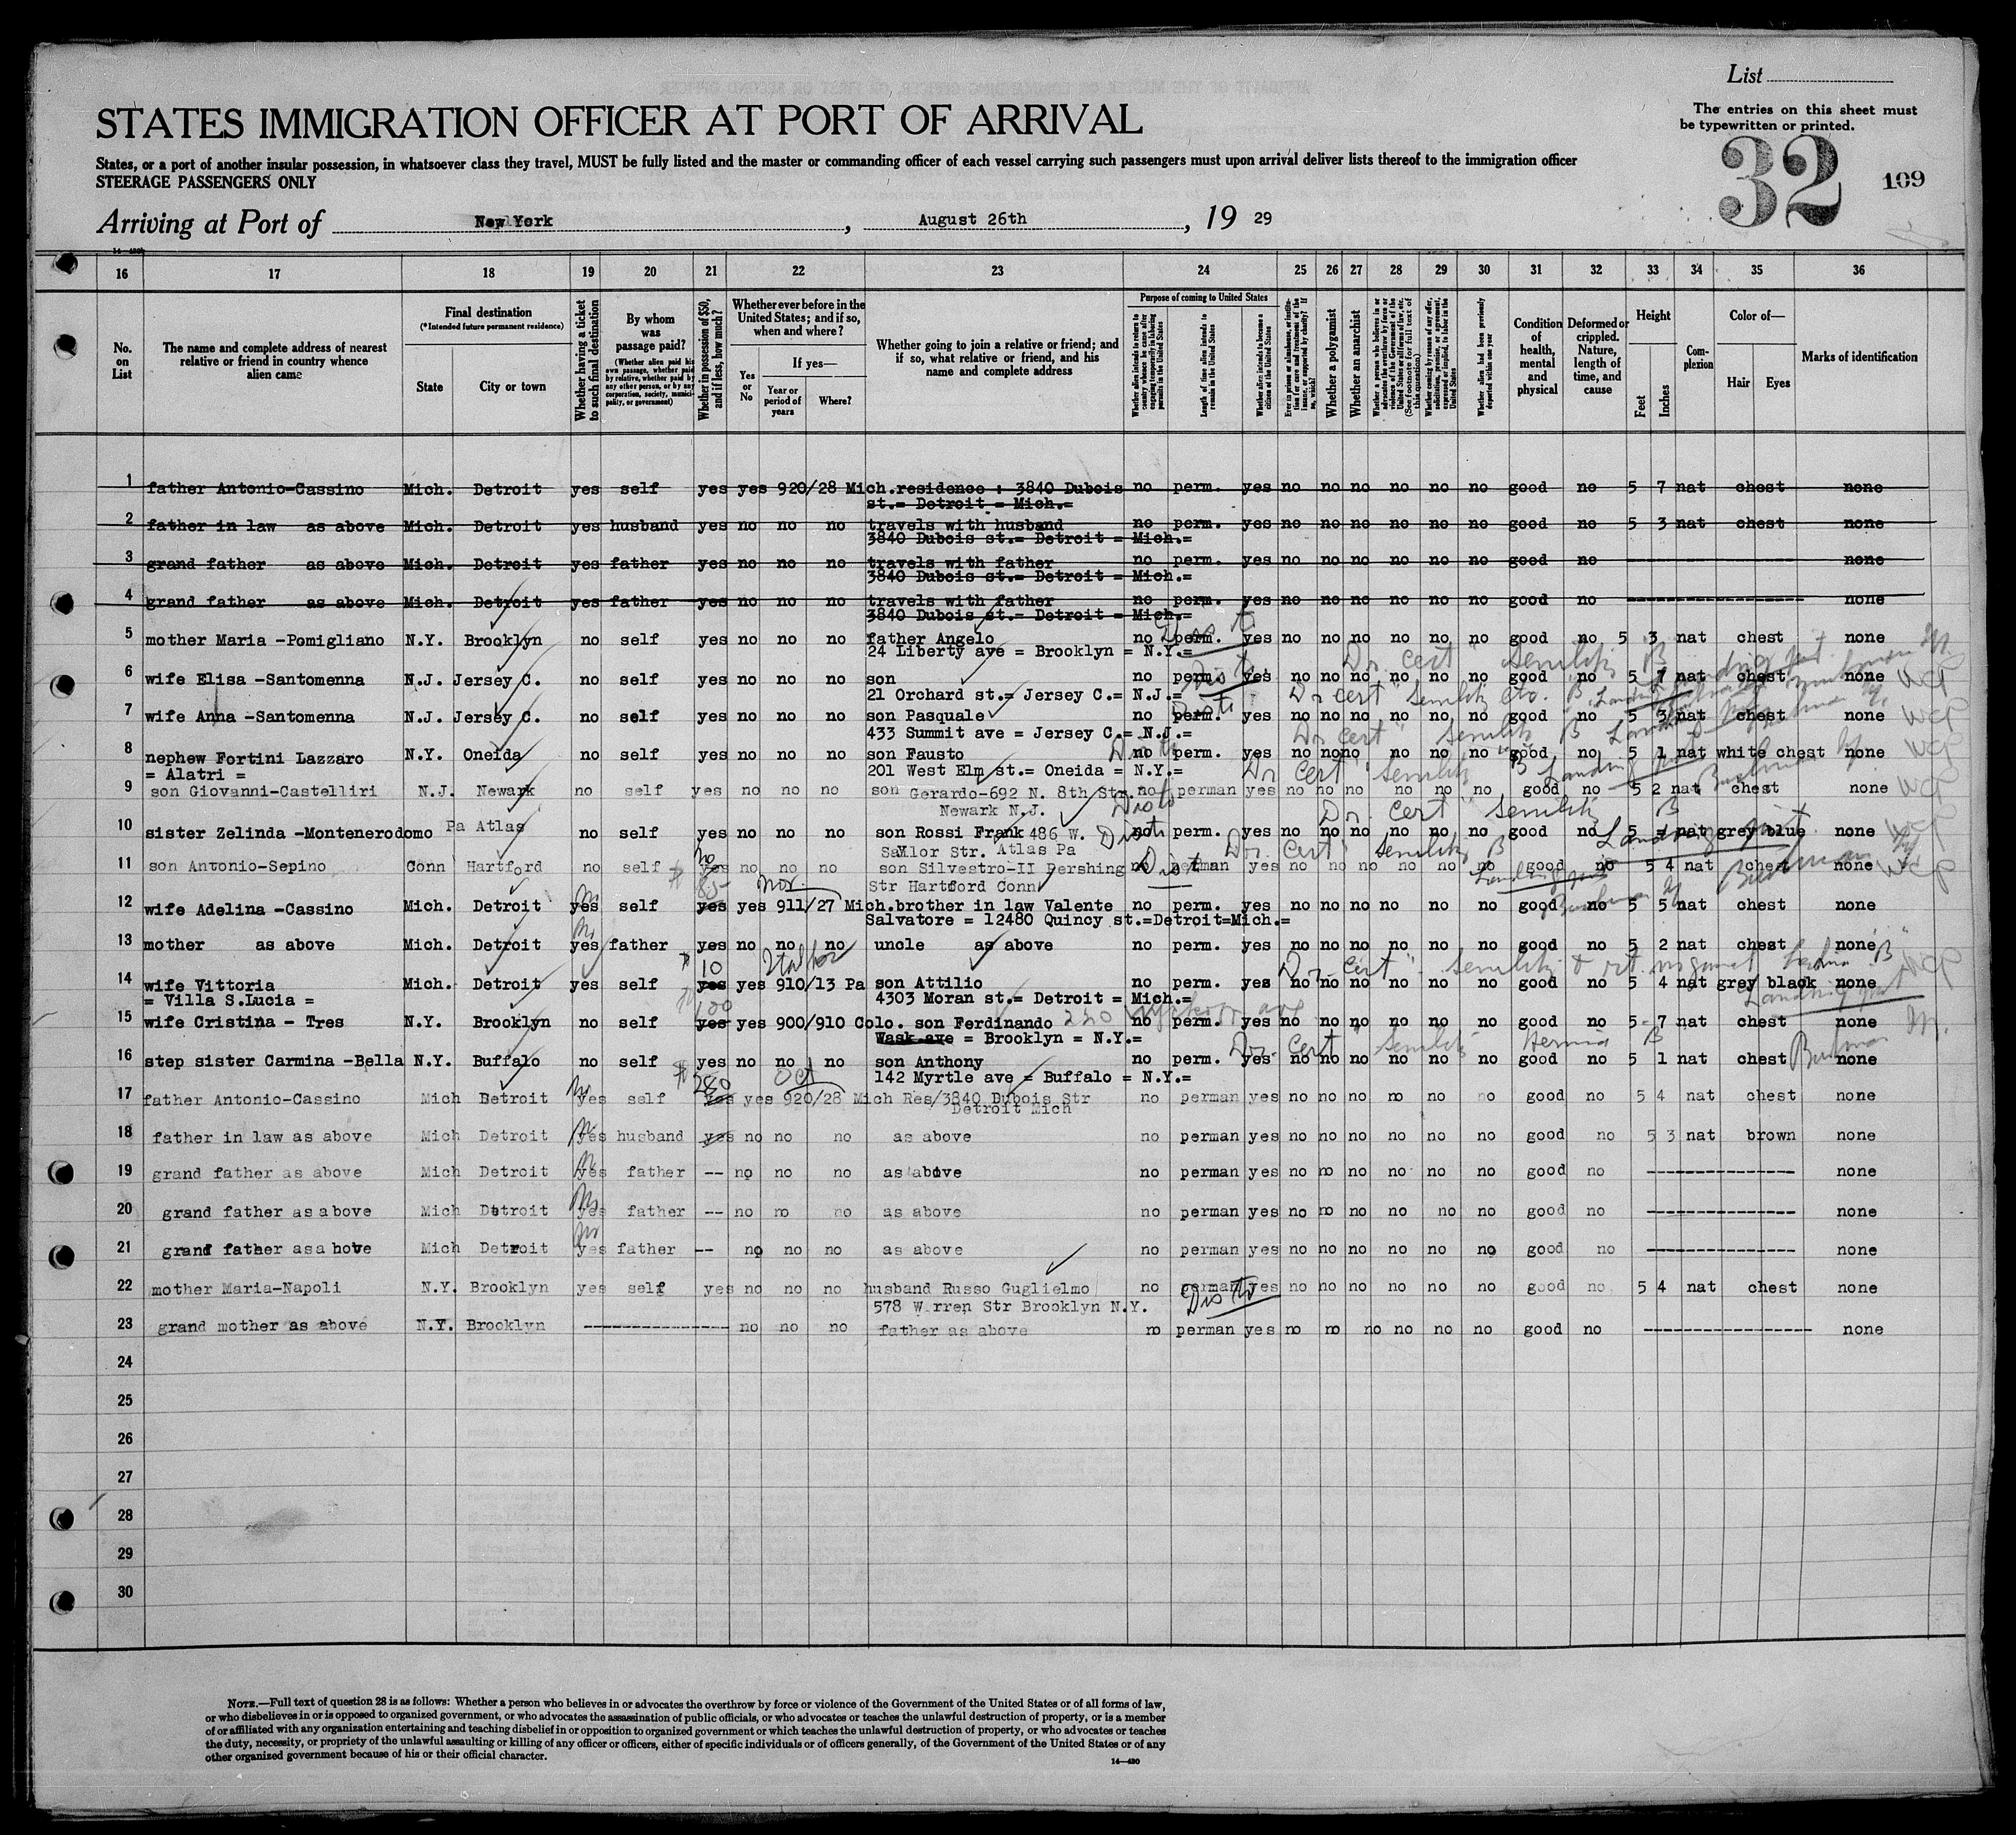 List
The entries on this sheet must
be typewritten or printed.
STATES IMMIGRATION OFFICER AT PORT OF ARRIVAL
32
109
States, or a port of another insular possession, in whatsoever class they travel, MUST be fully listed and the master or commanding officer of each vessel carrying such passengers must upon arrival deliver lists thereof to the immigration officer
STEERAGE PASSENGERS ONLY
Arriving at Port of New York, August 26th, 19 29
16 17 18 19 20 21 22 23 24 25 26 27 28 29 30 31 32 33 34 35 36
No. on List
The name and complete address of nearest relative or friend in country whence alien came
Final destination
(*Intended future permanent residence)
State
City or town
Whether having a ticket to such final destination
By whom was passage paid?
(Whether alien paid his own passage, whether paid by relative, whether paid by any other person, or by any corporation, society, municipality, or government)
Whether in possession of $50, and if less, how much?
Whether ever before in the United States; and if so, when and where?
Yes or No
If yes—
Year or period of years
Where?
Whether going to join a relative or friend; and if so, what relative or friend, and his name and complete address
Purpose of coming to United States
Whether alien intends to return to country whence he came after engaging temporarily in laboring pursuits in the United States
Length of time alien intends to remain in the United States
Whether alien intends to become a citizen of the United States
Whether a polygamist
Whether an anarchist
Whether alien had been previously deported within one year
Condition of health, mental and physical
Deformed or crippled. Nature, length of time, and cause
Height
Feet
Inches
Complexion
Color of—
Hair
Eyes
Marks of identification
1 father Antonio-Cassino Mich. Detroit yes self yes yes 920/28 Mich. residence : 3840 Dubois no perm. yes no no no no no no good no 5 7 nat chest none
st.= Detroit = Mich.=
2 father in law as above Mich. Detroit yes husband yes no no no travels with husband no perm. yes no no no no no no good no 5 3 nat chest none
3840 Dubois st.= Detroit = Mich.=
3 grand father as above Mich. Detroit yes father yes no no no travels with father no perm. yes no no no no no no good no none
3840 Dubois st.= Detroit = Mich.=
4 grand father as above Mich. Detroit yes father yes no no no travels with father no perm. yes no no no no no no good no none
3840 Dubois st.= Detroit = Mich.=
5 mother Maria -Pomigliano N.Y. Brooklyn no self yes no no no father Angelo no perm. yes no no no no no no good no 5 3 nat chest none
24 Liberty ave = Brooklyn = N.Y.=
Dr. cert "Senility B
6 wife Elisa -Santomenna N.J. Jersey C. no self yes no no no son no perm. yes no no no no no no good no 5 7 nat chest none
21 Orchard st.= Jersey C.= N.J.=
Dr cert "Senility etc. B
7 wife Anna -Santomenna N.J. Jersey C. no self yes no no no son Pasquale no perm. yes no no no no no no good no 5 3 nat chest none
433 Summit ave = Jersey C.= N.J.=
Dr cert" Senility B
8 nephew Fortini Lazzaro N.Y. Oneida no self yes no no no son Fausto no perm. yes no no no no no no good no 5 1 nat white chest none
= Alatri = 201 West Elm st.= Oneida = N.Y.=
Dr Cert "Senility B
9 son Giovanni-Castelliri N.J. Newark no self yes no no no son Gerardo-692 N. 8th Str. no perman yes no no no no no no good no 5 2 nat chest none
Newark N.J.
Dr. cert "Senility B
10 sister Zelinda -Montenerodomo Pa Atlas no self yes no no no son Rossi Frank 486 W. no perm. yes no no no no no no good no 5 nat grey blue none
Saylor Str. Atlas Pa
Dr. Cert "Senility B
11 son Antonio-Sepino Conn Hartford no self yes no no no son Silvestro-II Pershing no perman yes no no no no no no good no 5 4 nat chest none
Str Hartford Conn
12 wife Adelina -Cassino Mich. Detroit yes self yes yes 911/27 Mich. brother in law Valente no perm. yes no no no no no no good no 5 5 nat chest none
Salvatore = 12480 Quincy st.=Detroit=Mich.=
13 mother as above Mich. Detroit yes father yes no no no uncle as above no perm. yes no no no no no no good no 5 2 nat chest none
14 wife Vittoria Mich. Detroit yes self 10 yes yes 910/13 Pa son Attilio no perm. yes no no no no no no good no 5 4 nat grey black none
= Villa S.Lucia = 4303 Moran st.= Detroit = Mich.=
15 wife Cristina - Tres N.Y. Brooklyn no self 100 yes yes 900/910 Colo. son Ferdinando no perm. yes no no no no no no good no 5 7 nat chest none
Wask ave = Brooklyn = N.Y.=
Dr. Cert "Senility Hernia B
16 step sister Carmina -Bella N.Y. Buffalo no self yes no no no son Anthony no perm. yes no no no no no no good no 5 1 nat chest none
142 Myrtle ave = Buffalo = N.Y.=
17 father Antonio-Cassino Mich Detroit yes self $ 280 yes yes Oct 920/28 Mich Res/3840 Dubois Str no perman yes no no no no no no good no 5 4 nat chest none
Detroit Mich
18 father in law as above Mich Detroit yes husband yes no no no as above no perman yes no no no no no no good no 5 3 nat brown none
19 grand father as above Mich Detroit yes father -- no no no as above no perman yes no no no no no no good no none
20 grand father as above Mich Detroit yes father -- no no no as above no perman yes no no no no no no good no none
21 grand father as above Mich Detroit yes father -- no no no as above no perman yes no no no no no no good no none
22 mother Maria-Napoli N.Y. Brooklyn yes self yes no no no husband Russo Guglielmo no perman yes no no no no no no good no 5 4 nat chest none
578 W rren Str Brooklyn N.Y.
23 grand mother as above N.Y. Brooklyn no no no father as above no perman yes no no no no no no good no none
24
25
26
27
28
29
30
NOTE.—Full text of question 28 is as follows: Whether a person who believes in or advocates the overthrow by force or violence of the Government of the United States or of all forms of law,
or who disbelieves in or is opposed to organized government, or who advocates the assassination of public officials, or who advocates or teaches the unlawful destruction of property, or is a member
of or affiliated with any organization entertaining and teaching disbelief in or opposition to organized government or which teaches the unlawful destruction of property, or who advocates or teaches
the duty, necessity, or propriety of the unlawful assaulting or killing of any officer or officers, either of specific individuals or of officers generally, of the Government of the United States or of any
other organized government because of his or their official character.
14—430